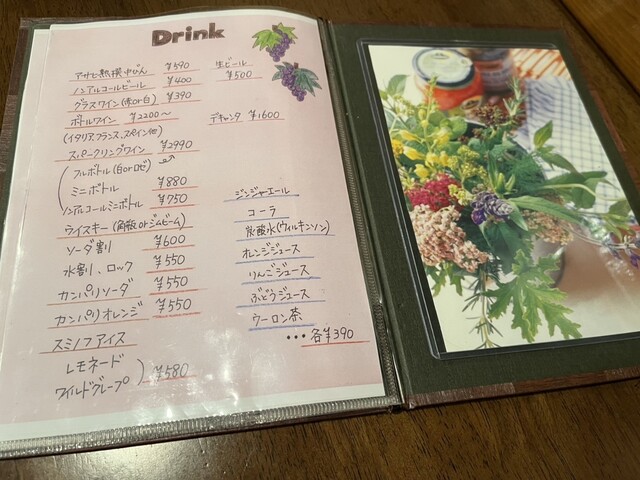 Drink
アサヒ熟撰中びん ¥590
生ビール ¥500
ノンアルコールビール ¥400
グラスワイン(赤or白) ¥390
ボトルワイン ¥2200〜
デキャンタ ¥1600
(イタリア、フランス、スペイン他)
スパークリングワイン ¥2990
フルボトル(白orロゼ)
ミニボトル ¥880
ノンアルコールミニボトル ¥750
ウイスキー(角瓶orジムビーム)
ソーダ割 ¥600
水割、ロック ¥550
カンパリソーダ ¥550
カンパリオレンジ ¥550
スミノフアイス
レモネード
ワイルドグレープ ¥580
ジンジャーエール
コーラ
炭酸水(ウィルキンソン)
オレンジジュース
りんごジュース
ぶどうジュース
ウーロン茶
・・・各¥390